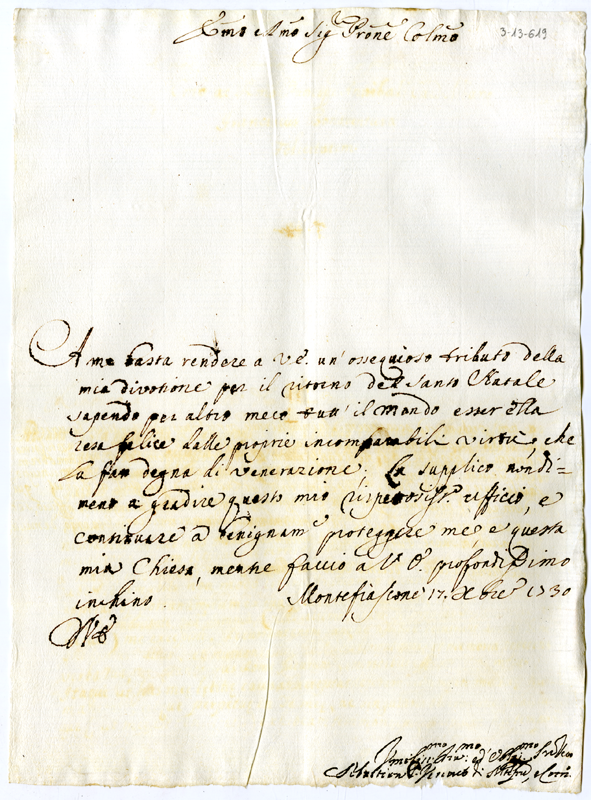 Emo e Rmo Sig Prone Colmo
3-13-619
A me basta rendere a V.E. un' ossequioso tributo della
mia divotione per il ritorno del Santo Natale
sapendo per altro meco tutt' il Mondo esser ella
resa felice dalle proprie incomparabili virtù, che
La fan degna di venerazione. La supplico nondi=
meno a gradire questo mio rispettosissº ufficio, e
continuare a benignamᵉ proteggere me, e questa
mia Chiesa, mentre faccio a V. E. profondissimo
inchino. Montefiascone 17. Xbre 1730
Umiliss.mo Div.mo ed Obligmo
Sebastiano